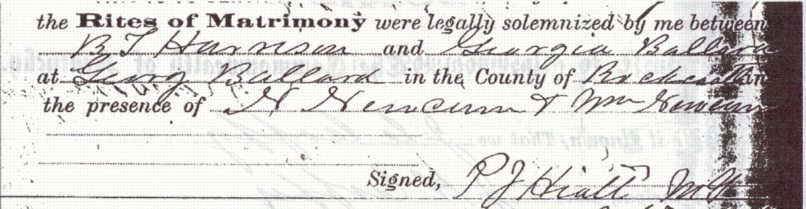 the Rites of Matrimony were legally solemnized by me between
B T Harrison and Georgia Ballard
at Georg Ballard in the County of Rockcastle in
the presence of H Newcum & Wm Newcum
Signed, P J Hiatt